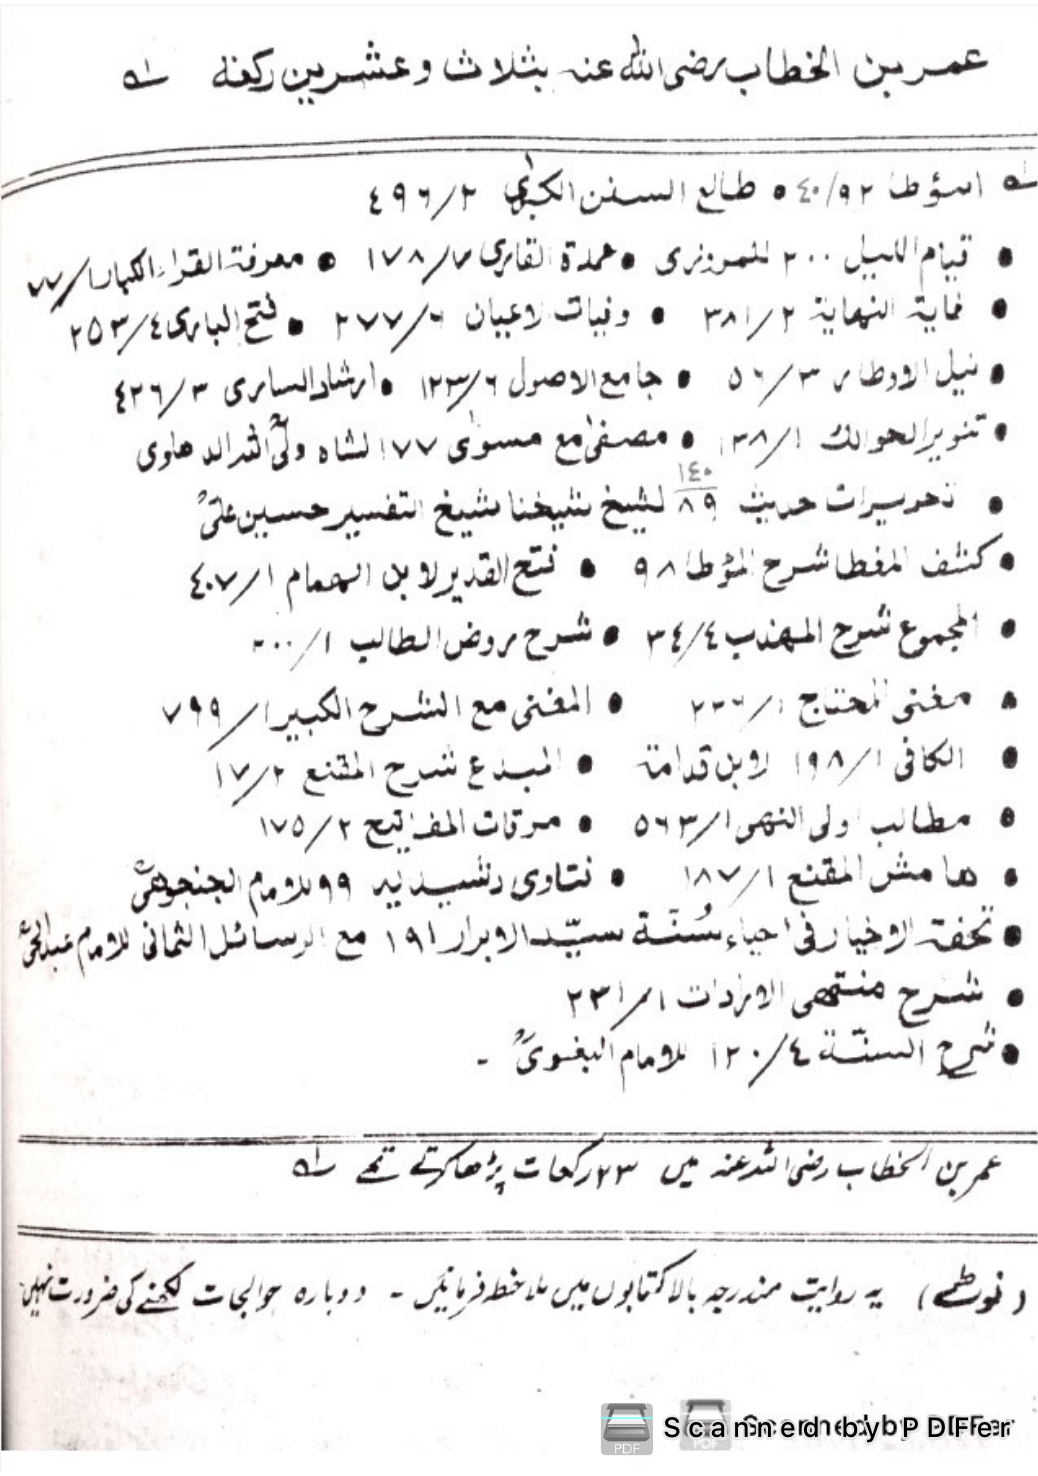 عمر بن الخطاب رضی اللہ عنہ بثلاث و عشرین رکعۃ لہ
لہ المؤطا ٤٠/٩٢ • طالع السنن الکبریٰ ٤٩٦/٢
• قیام اللیل ٢٠٠ للمروزی • عمدۃ القاری ١٧٨/٧ • معرفۃ القراء الکبار ١/٧٧
• غایۃ النہایۃ ٣٨١/٢ • وفیات الاعیان ٢٧٧/٦ • فتح الباری ٢٥٣/٤
• نیل الاوطار ٥٦/٣ • جامع الاصول ١٢٣/٦ • ارشاد الساری ٤٢٦/٣
• تنویر الحوالک ١٣٨/١ • مصفیٰ مع مسوّیٰ ١٧٧ لشاہ ولیؒ اللہ الدھلوی
• تحریرات حدیث ١٤٠ ٨٩ لشیخ شیخنا شیخ التفسیر حسین علیؒ
• کشف المغطا شرح المؤطا ٩٨ • فتح القدیر لابن الھمام ٤٠٧/١
• المجموع شرح المہذب ٣٤/٤ • شرح روض الطالب ٢٠٠/١
• مغنی المحتاج ٢٢٦/١ • المغنی مع الشرح الکبیر ٧٩٩/١
• الکافی ١٩٨/١ لابن قدامۃ • المبدع شرح المقنع ١٧/٢
• مطالب اولی النھی ٥٦٣/١ • مرقات المفاتیح ١٧٥/٢
• ھامش المقنع ١٨٧/١ • فتاوی رشیدیہ ٩٩ للامام الجنجوھیؒ
• تحفۃ الاخیار فی احیاء سُنّۃ سیّد الابرار ١٩١ مع الرسائل الثمانی للامام عبدالحیؒ
• شرح منتھی الارادات ٢٣١/١
• شرح السنّۃ ١٢٠/٤ للامام البغویؒ -
عمر بن الخطاب رضی اللہ عنہ میں ٢٣ رکعات پڑھا کرتے تھے لہ
(نوٹ) یہ روایت مندرجہ بالا کتابوں میں ملاحظہ فرمائیں - دوبارہ حوالجات لکھنے کی ضرورت نہیں
Scanned by PDFer
Scanned by PDFer